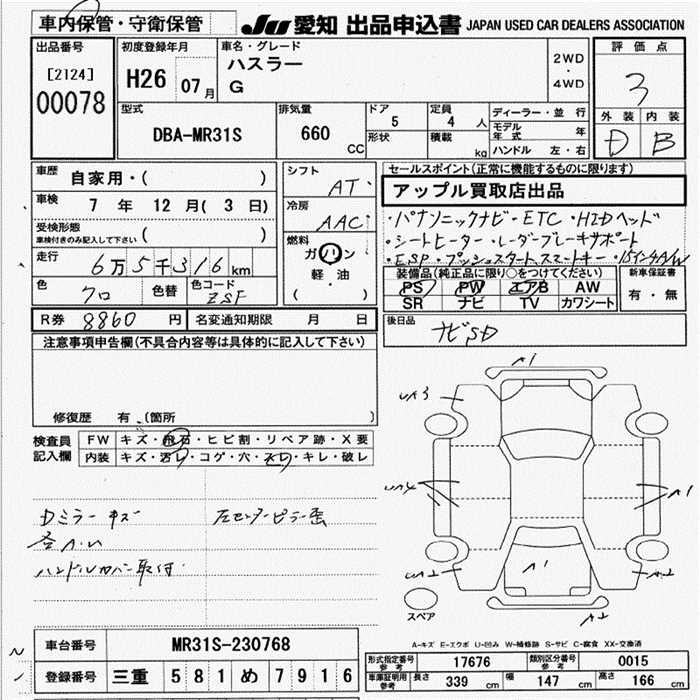 車内保管・守衛保管
JU 愛知 出品申込書 JAPAN USED CAR DEALERS ASSOCIATION
出品番号
[2124]
00078
初度登録年月
H26 07月
車名・グレード
ハスラー
G
2WD
・
4WD
評価点
3
外装 内装
D B
型式
DBA-MR31S
排気量
660
CC
ドア
5
形状
定員
4 人
積載
kg
ディーラー・並行
モデル年式 年
ハンドル 左・右
車歴
自家用・( )
車検
7 年 12 月( 3 日)
受検形態
車検付きのみ記入して下さい ( )
走行
6万5千316km
色
クロ
色替
色コード
ZSF
シフト
AT
冷房
AAC
燃料
ガソリン
軽・油
( )
セールスポイント(正常に機能するものに限ります)
アップル買取店出品
・パナソニックナビ・ETC・HIDヘッド
・シートヒーター・レーダーブレーキサポート
・ESP・プッシュスタート、スマートキー・15インチA/W
装備品(純正品に限り○をつけてください)
PS PW エアB AW
SR ナビ TV カワシート
新車保証書
有・無
R券 8860 円
名変通知期限 月 日
後日品
ナビSD
注意事項申告欄(不具合内容等は具体的に記入して下さい)
修復歴 有 (箇所 )
検査員
記入欄
FW キズ・飛石・ヒビ割・リペア跡・X要
内装 キズ・汚レ・コゲ・穴・スレ・キレ・破レ
Dミラーキズ
左センターピラー
ハンドルカバー取付
A1
UA3
UA4
A1
A1
UA2
A2
A2
スペア
A-キズ E-エクボ U-凹み W-補修跡 S-サビ C-腐食 XX-交換済
車台番号 MR31S-230768
登録番号 三重 581 め 7916
形式指定番号
参考
17676
類別区分番号
参考
0015
車庫証明用
参考
長さ 339 cm 幅 147 cm 高さ 166 cm